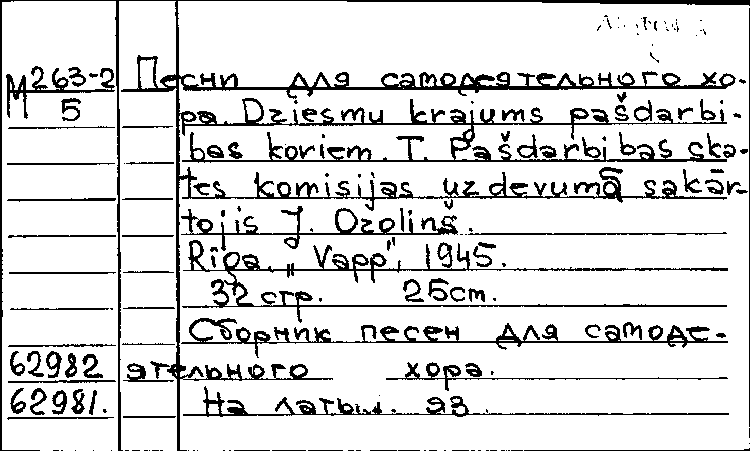 М 263-2 Песни для самодеятельного хо-
5 ра. Dziesmu krājums pašdarbī-
bas koriem. T. Pašdarbības ska-
tes komisijas uzdevumā sakār-
tojis J. Ozoliņš.
Rīga. „Vapp", 1945.
32 стр. 25cm.
Сборник песен для самоде-
62982 ятельного хора.
62981. На латыш. яз.